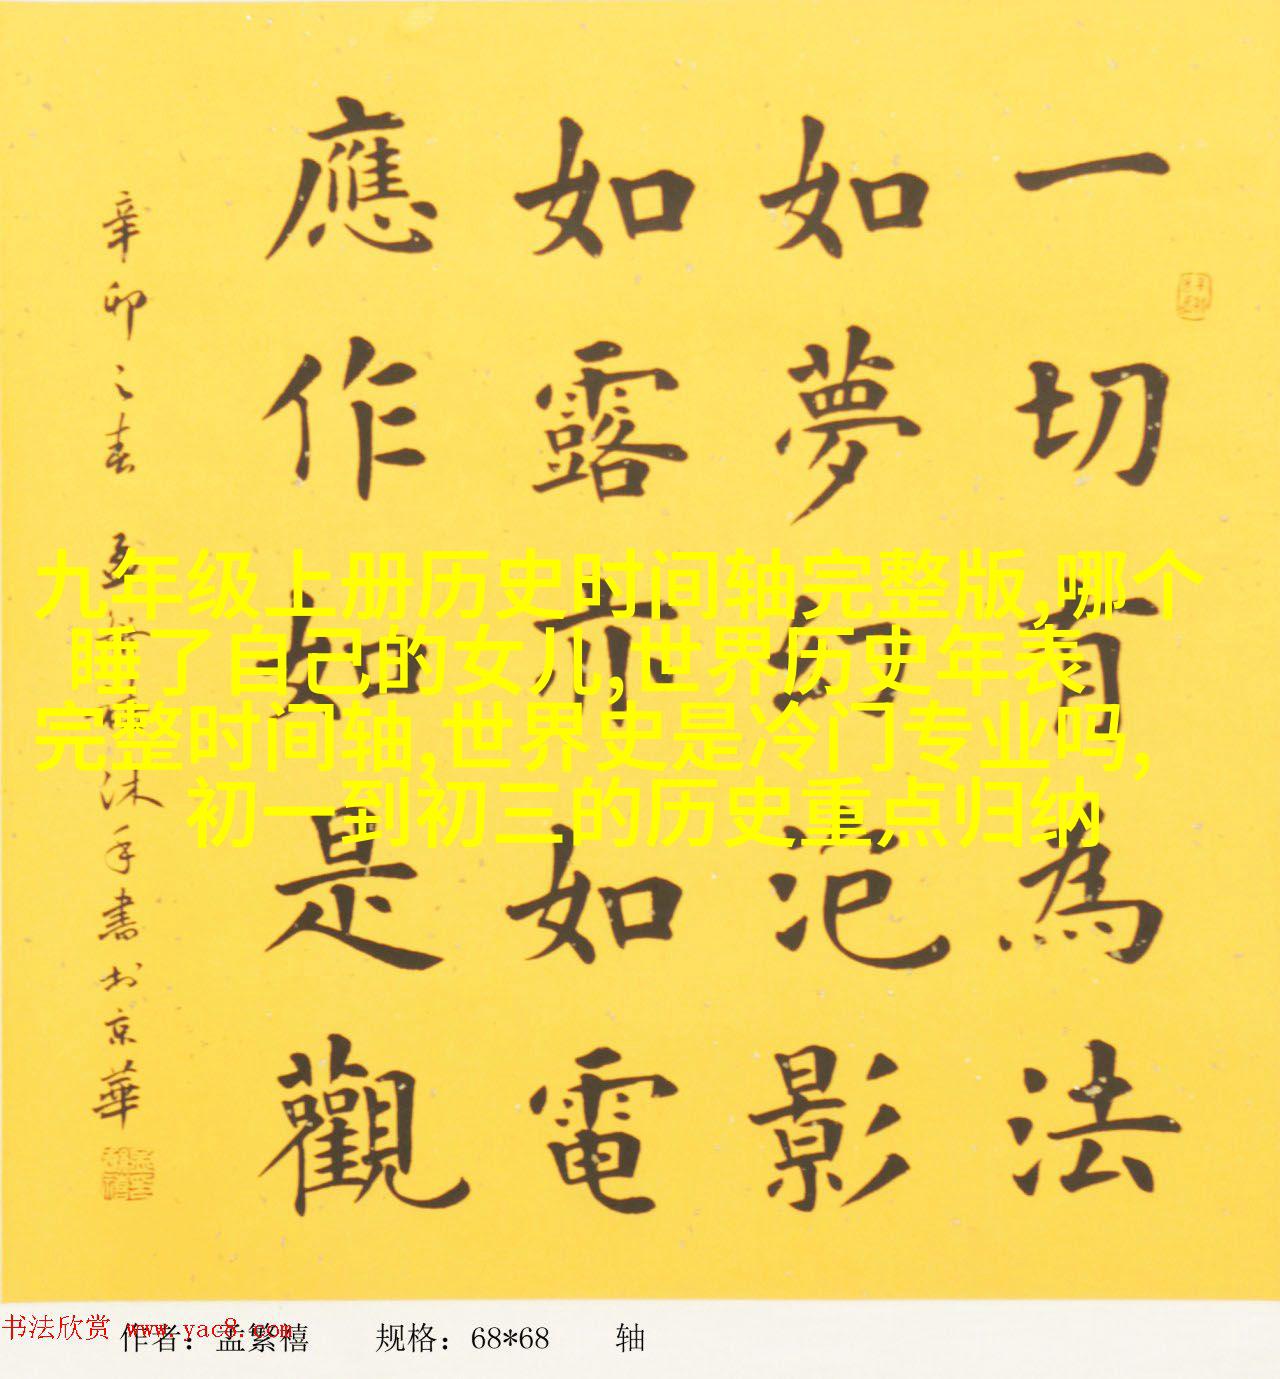 一切有為法
如夢幻泡影
如露亦如電
應作如是觀
辛卯之春 孟繁禧沐手書於京華
九年级上册历史时间轴完整版,哪个
睡了自己的女儿,世界历史年表
完整时间轴,世界史是冷门专业吗,
初一到初三的历史重点归纳
书法欣赏 www.yac8.com
作者：孟繁禧 规格：68*68 轴